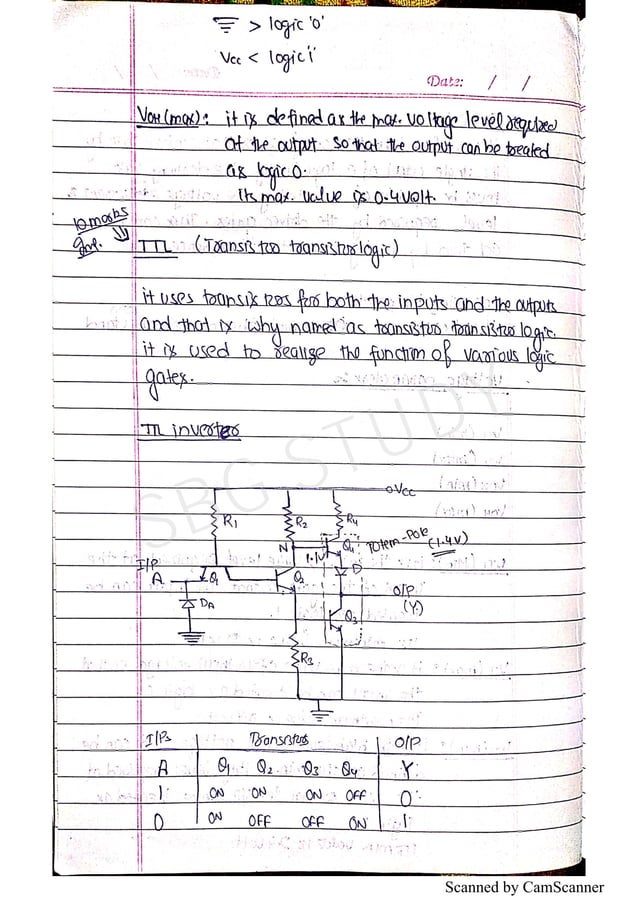 ⏚ > logic '0'
Vcc < logic '1'
Date: / /
VOH (max): it is defined as the max. voltage level required
at the output so that the output can be treated
as logic 0.
Its max. value is 0.4 volt.
10 marks
TTL (Transistor transistor logic)
it uses transistors for both the inputs and the outputs
and that is why named as transistor transistor logic.
it is used to realise the function of various logic
gates.
TTL inverter
SBG STUDY
Vcc
R1 R2 R4
N 1.1V Q4 Totem-Pole
(1.4V)
I/P D
A Q1 Q2 O/P
DA (Y)
Q3
R3
I/Ps Transistors O/P
A Q1 Q2 Q3 Q4 Y
1 ON ON ON OFF 0
0 ON OFF OFF ON 1
Scanned by CamScanner